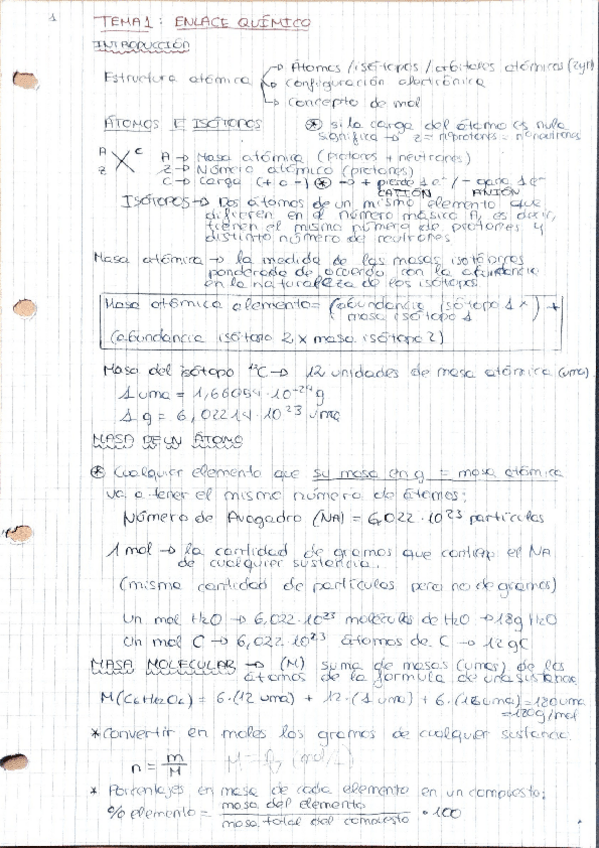 1
TEMA 1: ENLACE QUÍMICO
INTRODUCCIÓN
Estructura atómica → Átomos / isótopos / orbitales atómicos (2yr)
→ configuración electrónica
→ concepto de mol
ÁTOMOS E ISÓTOPOS
⊛ si la carga del átomo es nula
significa → z = nº protones = nº neutrones
A X C Z
A → Masa atómica (protones + neutrones)
Z → Número atómico (protones)
C → carga (+ o -) ⊛ → + pierde 1 e⁻ / - gana 1 e⁻
CATIÓN ANIÓN
ISÓTOPOS → Dos átomos de un mismo elemento que
difieren en el número másico A, es decir,
tienen el mismo número de protones y
distinto número de neutrones
Masa atómica → la medida de las masas isotópicas
ponderada de acuerdo con la abundancia
en la naturaleza de los isótopos
Masa atómica elemento = (abundancia isótopo 1 x
masa isótopo 1) +
(abundancia isótopo 2 x masa isótopo 2)
Masa del isótopo ¹²C → 12 unidades de masa atómica (uma)
1 uma = 1,66054·10⁻²⁴ g
1 g = 6,02214·10²³ uma
MASA DE UN ÁTOMO
⊛ Cualquier elemento que su masa en g = masa atómica
va a tener el mismo número de átomos:
Número de Avogadro (NA) = 6,022·10²³ partículas
1 mol → la cantidad de gramos que contiene el NA
de cualquier sustancia.
(misma cantidad de partículas pero no de gramos)
Un mol H₂O → 6,022·10²³ moléculas de H₂O → 18g H₂O
Un mol C → 6,022·10²³ átomos de C → 12 gC
MASA MOLECULAR → (M) suma de masas (umas) de los
átomos de la fórmula de una sustancia
M(C₆H₁₂O₆) = 6·(12 uma) + 12·(1 uma) + 6·(16 uma) = 180 uma
= 180 g/mol
* Convertir en moles los gramos de cualquier sustancia:
n = m/M
* Porcentajes en masa de cada elemento en un compuesto:
% elemento = masa del elemento / masa total del compuesto · 100